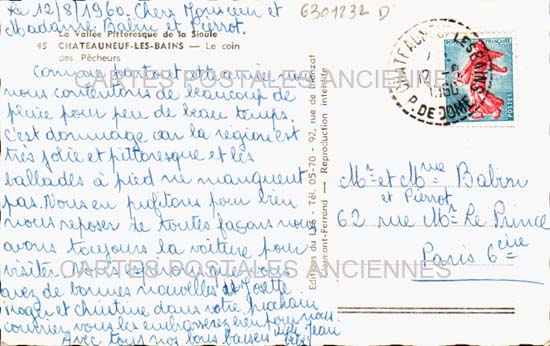 Le 12/8/1960. Chers Monsieur et
Madame Babin et Pierrot.
6301232 D
La Vallée Pittoresque de la Sioule
45 CHATEAUNEUF-LES-BAINS — Le coin
des Pêcheurs
nous
nous contenterons de beaucoup de
pluie pour peu de beau temps.
C'est dommage car la région est
très jolie et pittoresque et les
ballades à pied ne manquent
pas. Nous en profitons pour bien
nous reposer de toutes façons nous
avons toujours la voiture pour
visiter
avez de bonnes nouvelles de Josette
et Christine dans votre prochain
courrier vous les embrasserez bien pour nous
Avec tous nos bons baisers Jean
CARTES POSTALES ANCIENNES
CARTES POSTALES ANCIENNES
Editions du 05-70 - 92, rue de
Clermont-Ferrand — Reproduction interdite
CHATEAUNEUF LES BAINS
12 - 8
1960
P. DE DOME
POSTES
Mr et Mme Babin
et Pierrot
62 rue Mr Le Prince
Paris 6ème